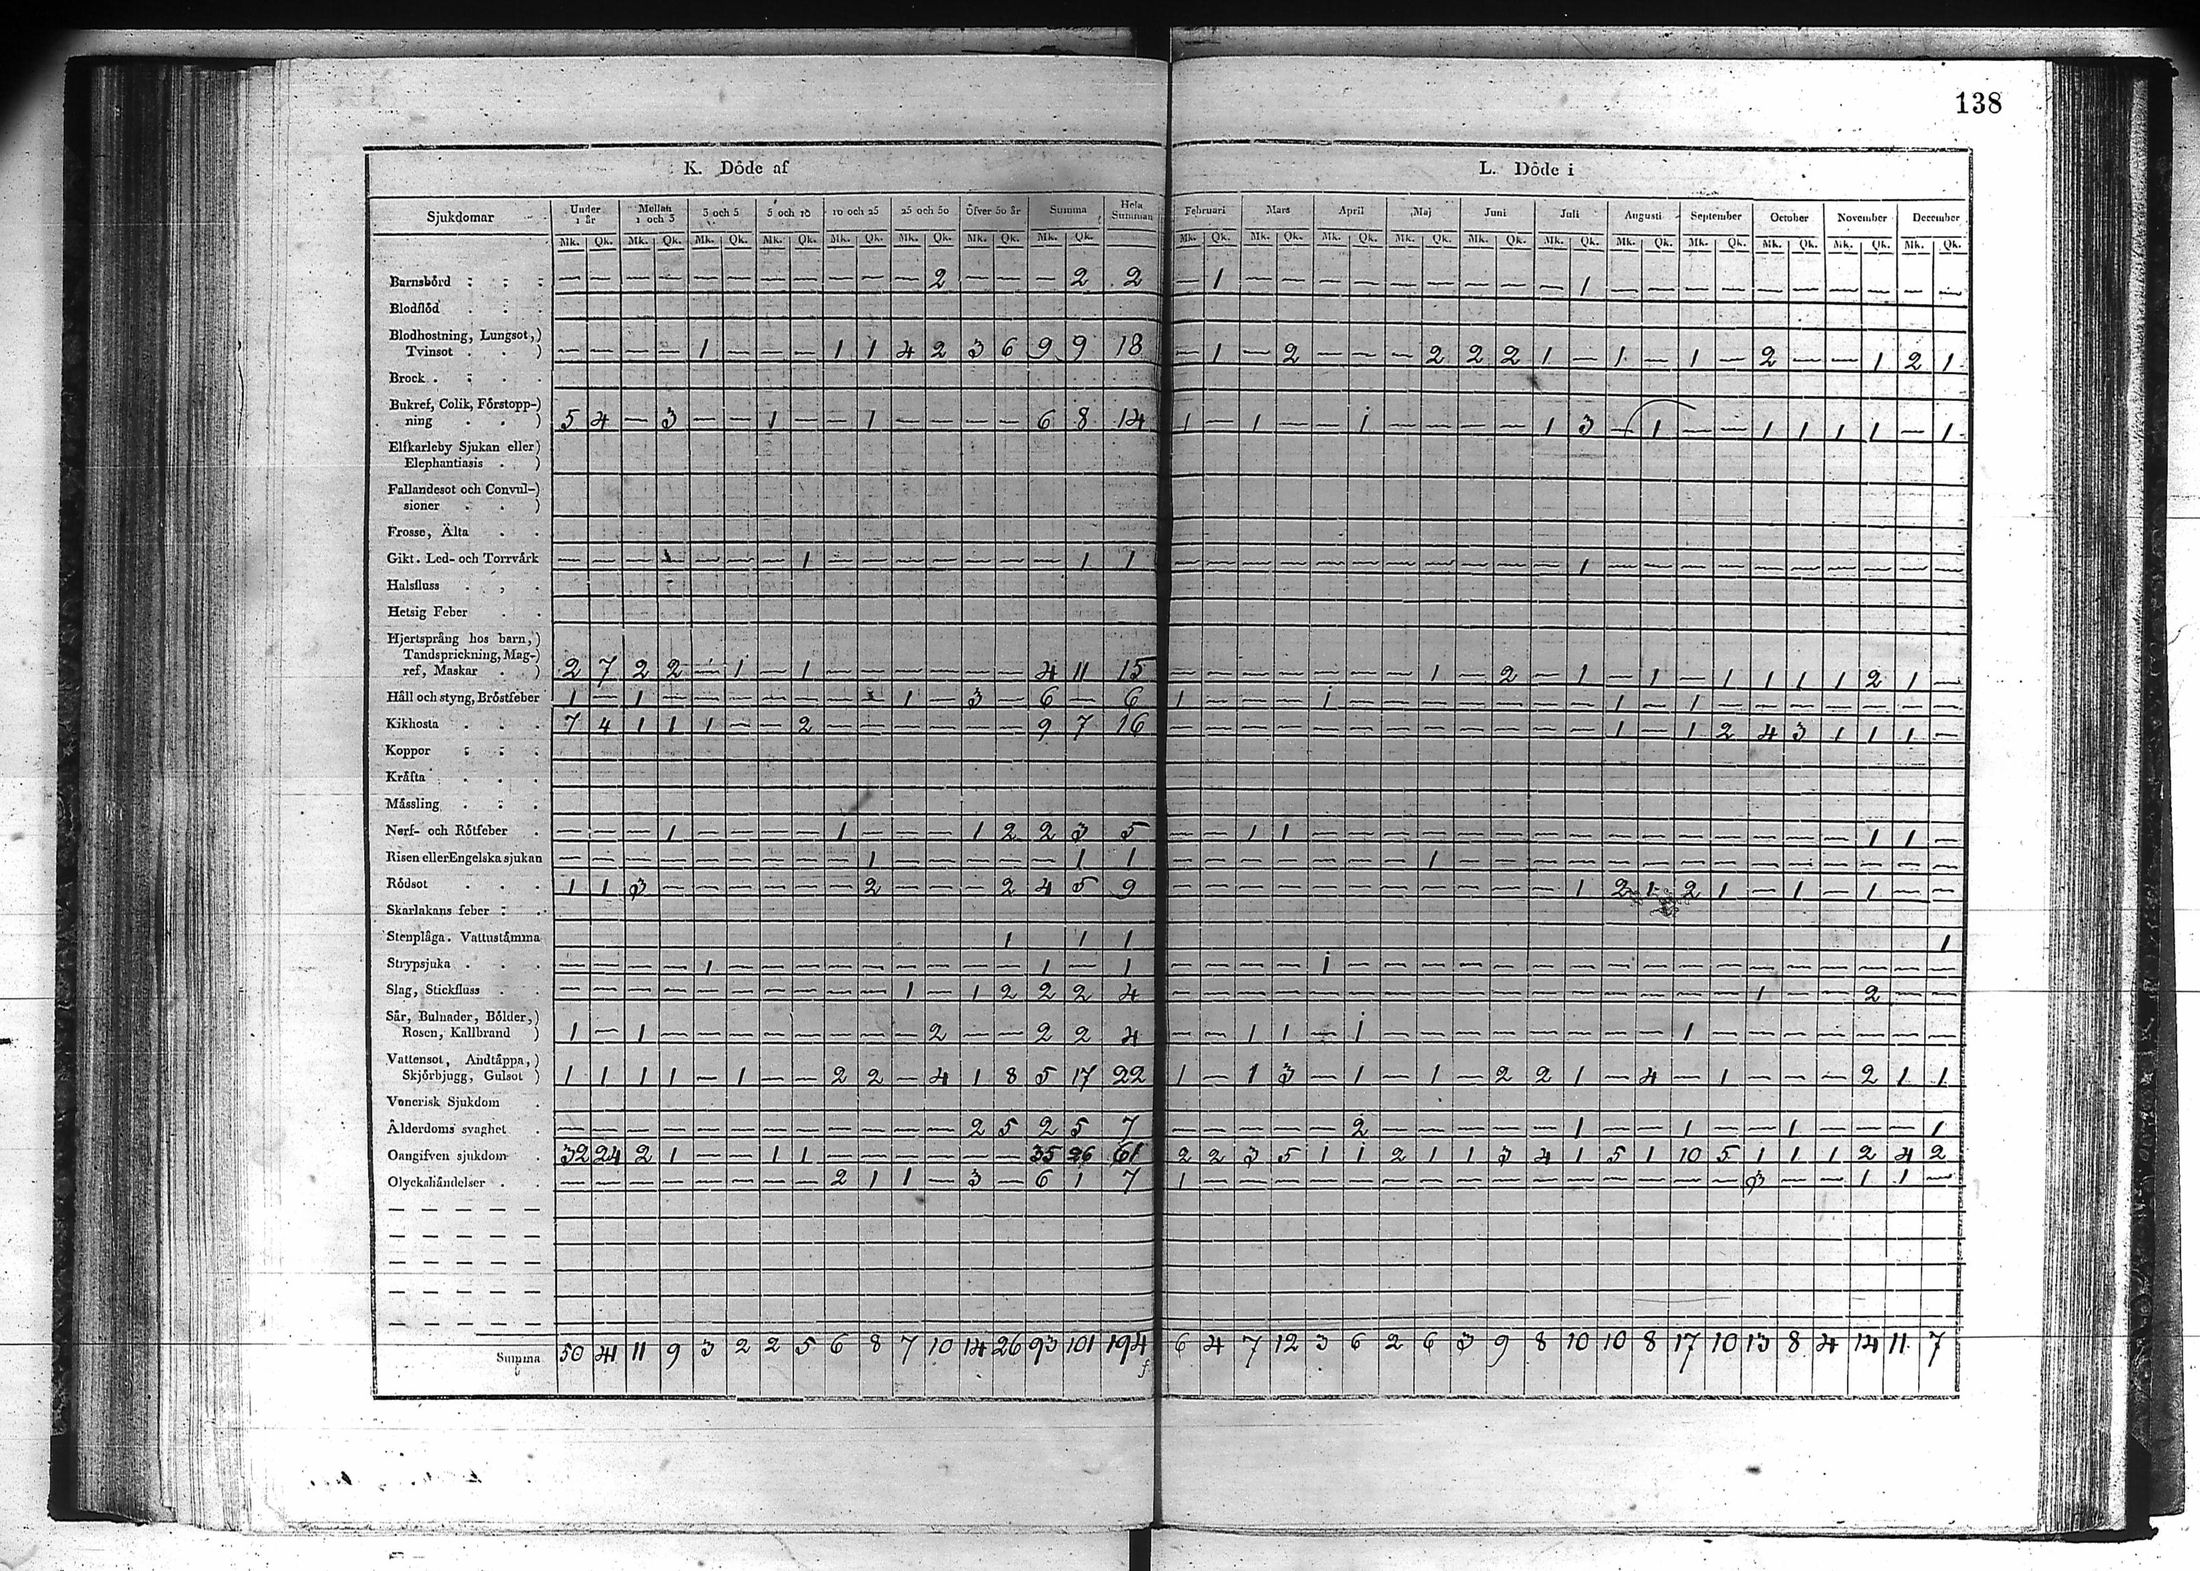 138
K. Döde af
L. Döde i
Sjukdomar Under 1 år Mellan 1 och 3 3 och 5 5 och 10 10 och 25 25 och 50 Öfver 50 år Summa Hela Summan Februari Mars April Maj Juni Juli Augusti September October November December
Mk. Qk. Mk. Qk. Mk. Qk. Mk. Qk. Mk. Qk. Mk. Qk. Mk. Qk. Mk. Qk. Mk. Qk. Mk. Qk. Mk. Qk. Mk. Qk. Mk. Qk. Mk. Qk. Mk. Qk. Mk. Qk. Mk. Qk. Mk. Qk. Mk. Qk.
Barnsbörd — — — — — — — — — — — 2 — — — 2 2 — 1 — — — — — — — — — 1 — — — — — — — — — —
Blodflöd
Blodhostning, Lungsot,)
Tvinsot . . ) — — — — 1 — — — 1 1 4 2 3 6 9 9 18 — 1 — 2 — — — 2 2 2 1 — 1 — 1 — 2 — — 1 2 1
Brock
Bukref, Colik, Förstopp-)
ning . . ) 5 4 — 3 — — 1 — — 1 — — — — 6 8 14 1 — 1 — — 1 — — — — 1 3 — 1 — — 1 1 1 1 — 1
Elfkarleby Sjukan eller)
Elephantiasis . )
Fallandesot och Convul-)
sioner . . )
Frosse, Älta
Gikt. Led- och Torrvärk — — — — — — — 1 — — — — — — — 1 1 — — — — — — — — — — — 1 — — — — — — — — — —
Halsfluss
Hetsig Feber
Hjertsprång hos barn,)
Tandsprickning, Mag-)
ref, Maskar . ) 2 7 2 2 — 1 — 1 — — — — — — 4 11 15 — — — — — — — 1 — 2 — 1 — 1 — 1 1 1 1 2 1 —
Håll och styng, Bröstfeber 1 — 1 — — — — — — — 1 — 3 — 6 — 6 1 — — — 1 — — — — — — — 1 — 1 — — — — — — —
Kikhosta 7 4 1 1 1 — — 2 — — — — — — 9 7 16 — — — — — — — — — — — — 1 — 1 2 4 3 1 1 1 —
Koppor
Kräfta
Mässling
Nerf- och Rötfeber — — — 1 — — — — 1 — — — 1 2 2 3 5 — — 1 1 — — — — — — — — — — — — — — — 1 1 —
Risen eller Engelska sjukan — — — — — — — — — 1 — — — — — 1 1 — — — — — — — 1 — — — — — — — — — — — — — —
Rödsot 1 1 3 — — — — — — 2 — — — 2 4 5 9 — — — — — — — — — — — 1 2 1 2 1 — 1 — 1 — —
Skarlakans feber
Stenplåga. Vattustämma 1 1 1 1
Strypsjuka — — — — 1 — — — — — — — — — 1 — 1 — — — — 1 — — — — — — — — — — — — — — — — —
Slag, Stickfluss — — — — — — — — — — 1 — 1 2 2 2 4 — — — — — — — — — — — — — — — — 1 — — 2 — —
Sår, Bulnader, Bölder,)
Rosen, Kallbrand ) 1 — 1 — — — — — — — — 2 — — 2 2 4 — — 1 1 — 1 — — — — — — — — 1 — — — — — — —
Vattensot, Andtäppa,)
Skjörbjugg, Gulsot ) 1 1 1 1 — 1 — — 2 2 — 4 1 8 5 17 22 1 — 1 3 — 1 — 1 — 2 2 1 — 4 — 1 — — — 2 1 1
Venerisk Sjukdom
Ålderdoms svaghet — — — — — — — — — — — — 2 5 2 5 7 — — — — — 2 — — — — — 1 — — 1 — — 1 — — — 1
Oangifven sjukdom 32 24 2 1 — — 1 1 — — — — — — 35 26 61 2 2 3 5 1 1 2 1 1 3 4 1 5 1 10 5 1 1 1 2 4 2
Olyckshändelser — — — — — — — — 2 1 1 — 3 — 6 1 7 1 — — — — — — — — — — — — — — — 3 — — 1 1 —
Summa 50 41 11 9 3 2 2 5 6 8 7 10 14 26 93 101 194 6 4 7 12 3 6 2 6 3 9 8 10 10 8 17 10 13 8 4 14 11 7